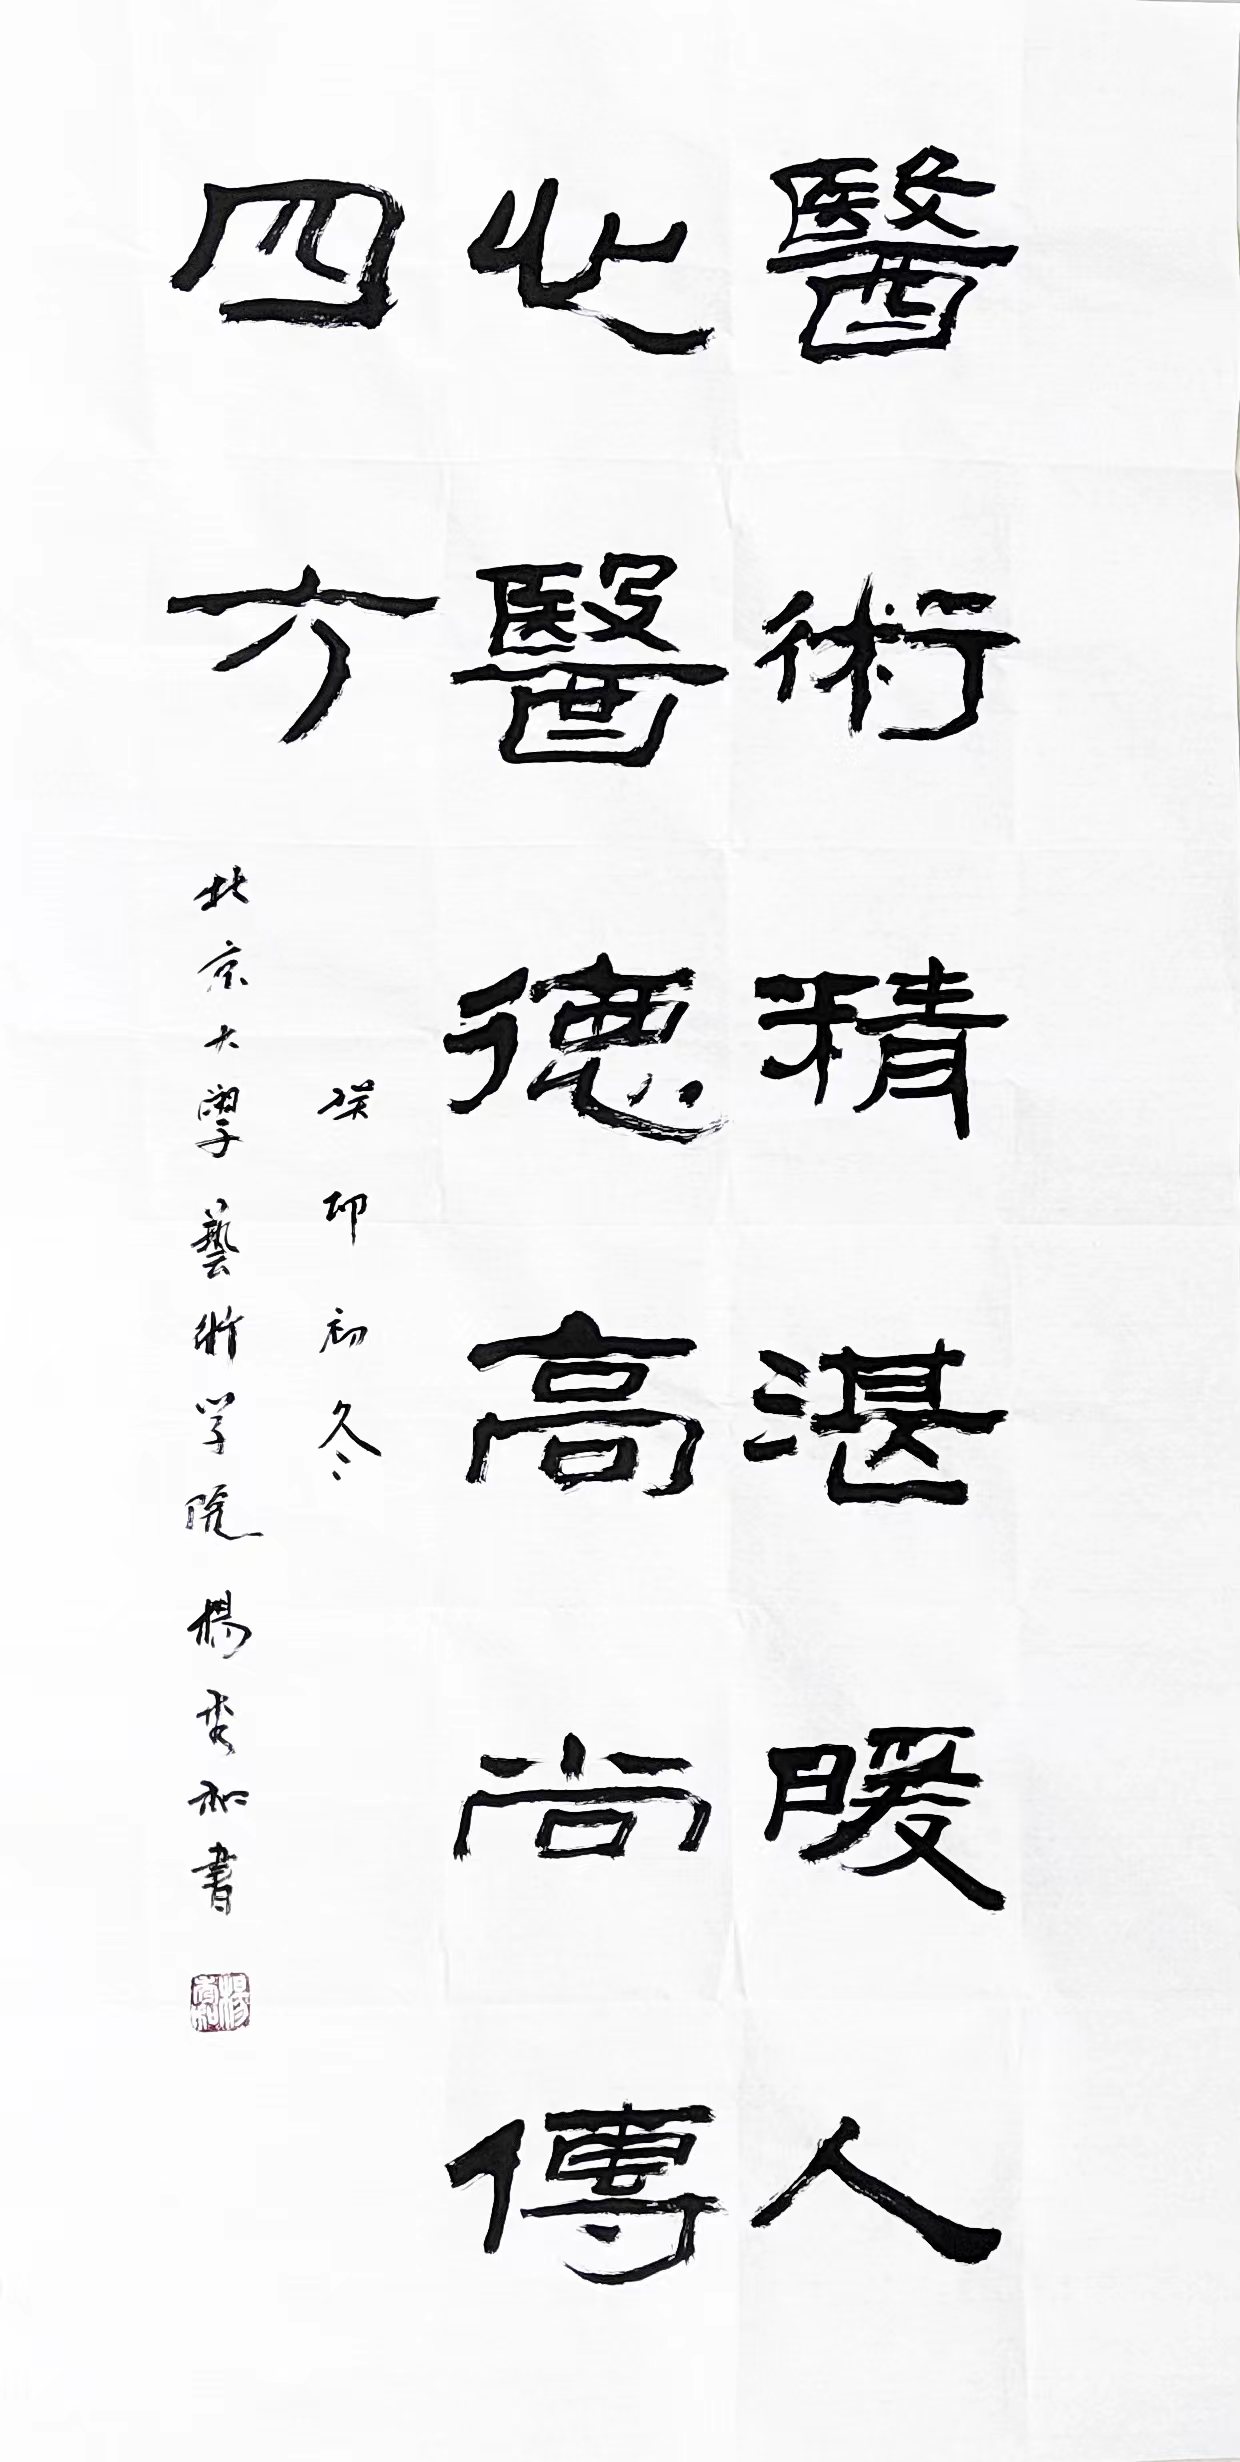 醫術精湛暖人
心醫德高尚傳
四方
癸卯初冬
北京大學藝術学院楊秀和書